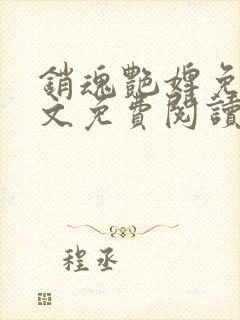 銷魂艷婢免
文免費閱讀
程丞